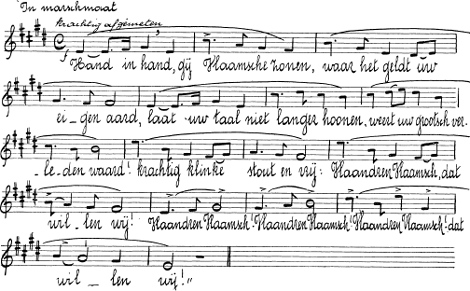 In marschmaat
krachtig afgemeten
Hand in hand, gij Vlaamsche zonen, waar het geldt uw
ei - gen aard, laat uw taal niet langer hoonen, weert uw grootsch ver-
- le - den waard! krachtig klinke stout en vrij: Vlaandren Vlaamsch, dat
wil - len wij! Vlaandren Vlaamsch! Vlaandren Vlaamsch! Vlaandren Vlaamsch! dat
wil - len wij!"